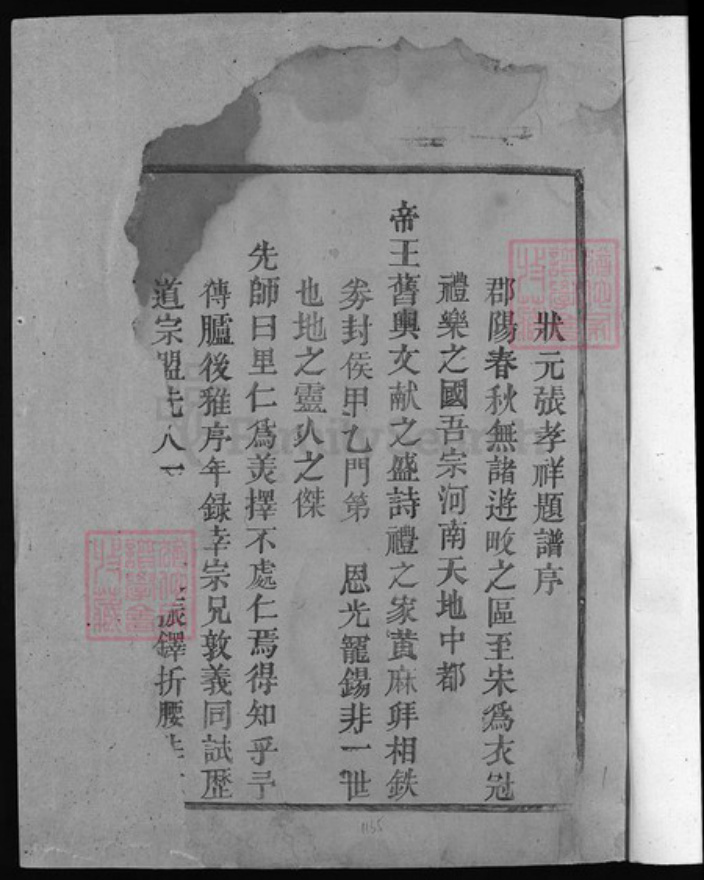 狀元張孝祥題譜序
郡陽春秋無諸遊畋之區至宋爲衣冠
禮樂之國吾宗河南天地中都
帝王舊輿文献之盛詩禮之家黃麻拜相鉄
券封侯甲乙門第 恩光寵錫非一世
也地之靈人之傑
先師曰里仁爲美擇不處仁焉得知乎予
傳臚後雅序年録幸宗兄敦義同試歷
道宗盟 振鐸折腰
1155